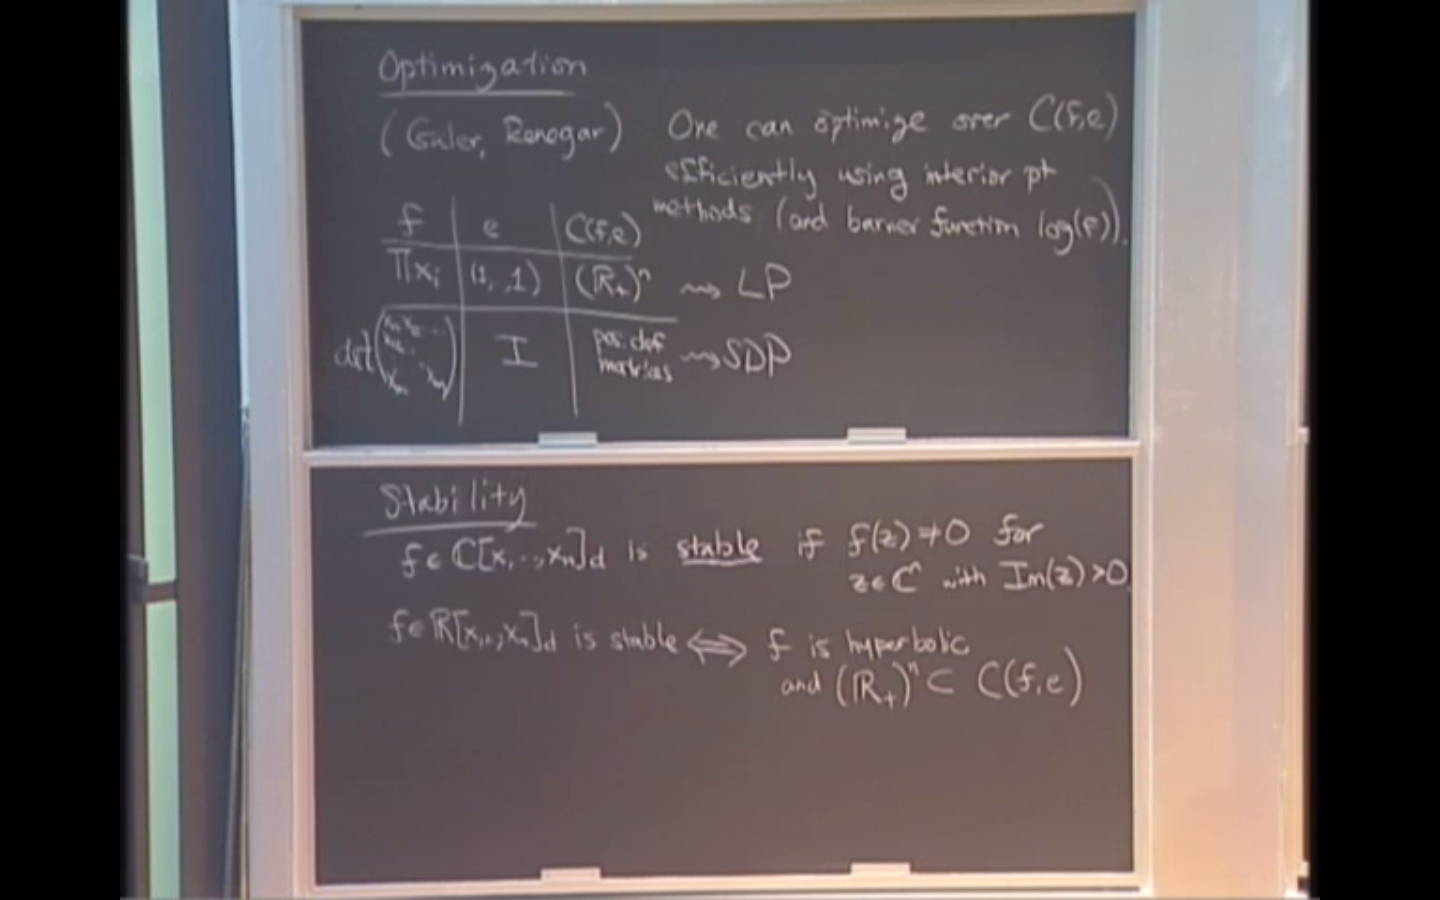 Optimization
(Guler, Renegar) One can optimize over C(f,e)
efficiently using interior pt
methods (and barrier function log(f)).
f | e | C(f,e)
∏xᵢ | (1,..,1) | (ℝ₊)ⁿ ⇝ LP
det | I | pos. def
matrices ⇝ SDP
Stability
f∈ℂ[x,..,xₙ]d is stable if f(z)≠0 for
z∈ℂⁿ with Im(z)>0.
f∈ℝ[x₁,..,xₙ]d is stable ⟺ f is hyperbolic
and (ℝ₊)ⁿ ⊂ C(f,e)